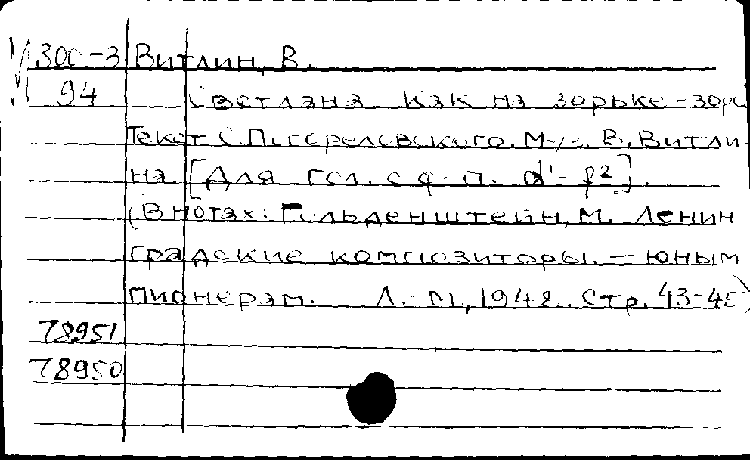 М 300-3 Витлин, В.
94 Светлана. Как на зорьке-зорь
Текст С. Погореловского. Муз. В. Витли
на [Для гол. с ф.-п. d¹-f²].
(В нотах: Гольденштейн, М. Ленин
градские композиторы. – юным
пионерам. Л.-М., 1948. Стр. 43-45)
78951
78950